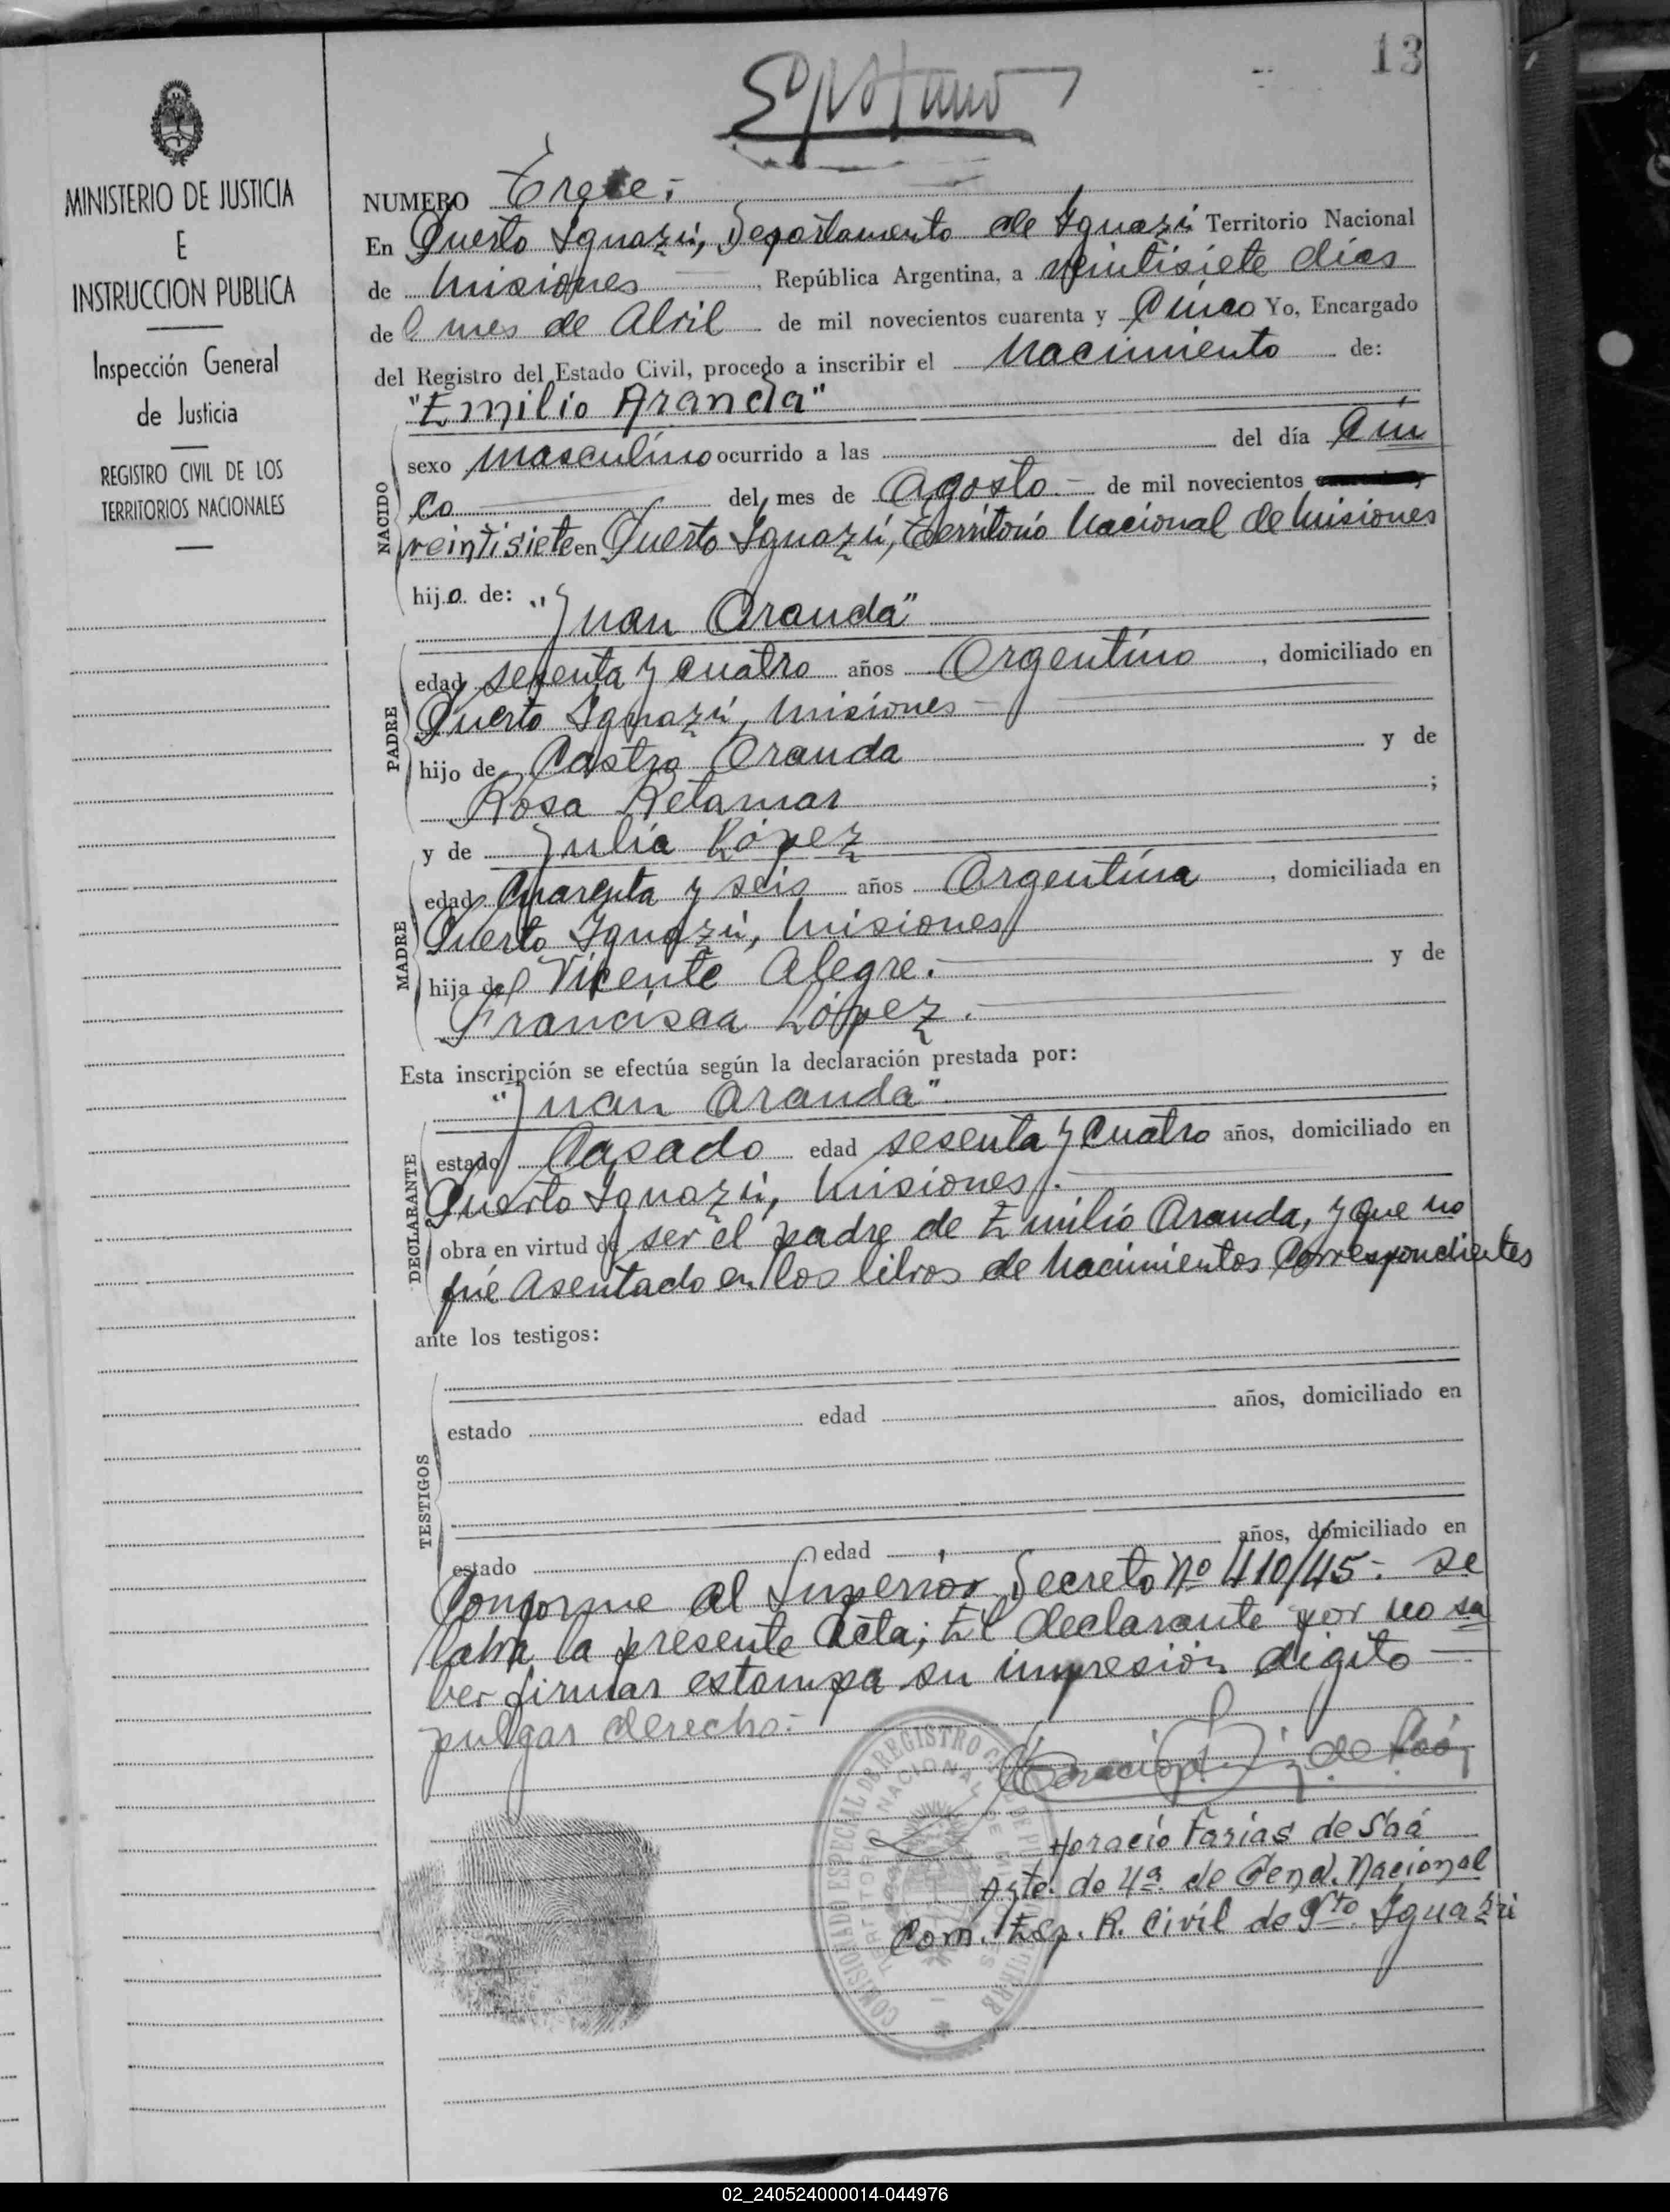 13
MINISTERIO DE JUSTICIA
E
INSTRUCCION PUBLICA
Inspección General
de Justicia
REGISTRO CIVIL DE LOS
TERRITORIOS NACIONALES
NUMERO Trece.-
En Puerto Iguazú, Departamento de Iguazú Territorio Nacional
de Misiones, República Argentina, a veintisiete días
del mes de Abril de mil novecientos cuarenta y Cinco Yo, Encargado
del Registro del Estado Civil, procedo a inscribir el Nacimiento de:
"Emilio Aranda"
NACIDO
sexo masculino ocurrido a las del día Cin
co del mes de Agosto.- de mil novecientos
veintisiete en Puerto Iguazú, Territorio Nacional de Misiones
hijo de: "Juan Aranda"
PADRE
edad sesenta y cuatro años Argentino, domiciliado en
Puerto Iguazú, Misiones-
hijo de Castro Aranda y de
Rosa Retamar;
y de Julia López
MADRE
edad Cuarenta y seis años Argentina, domiciliada en
Puerto Iguazú, Misiones
hija de Vicente Alegre.- y de
Francisca López.-
Esta inscripción se efectúa según la declaración prestada por:
"Juan Aranda".
DECLARANTE
estado Casado edad sesenta y Cuatro años, domiciliado en
Puerto Iguazú, Misiones.-
obra en virtud de ser el padre de Emilio Aranda, y que no
fué Asentado en los libros de Nacimientos Correspondientes
ante los testigos:
TESTIGOS
estado edad años, domiciliado en
estado edad años, domiciliado en
Conforme al Superior Decreto Nº 410/45.- se
labra la presente Acta; El declarante por no sa
ber firmar estampa su impresión digito
pulgar derecho.-
COMISIONADO ESPECIAL DE REGISTRO
TERRITORIO NACIONAL DE MISIONES
Horacio Farias de Saá
Agte. de 4ª. de Gend. Nacional
Com. Esp. R. Civil de Pto. Iguazú
02_240524000014-044976